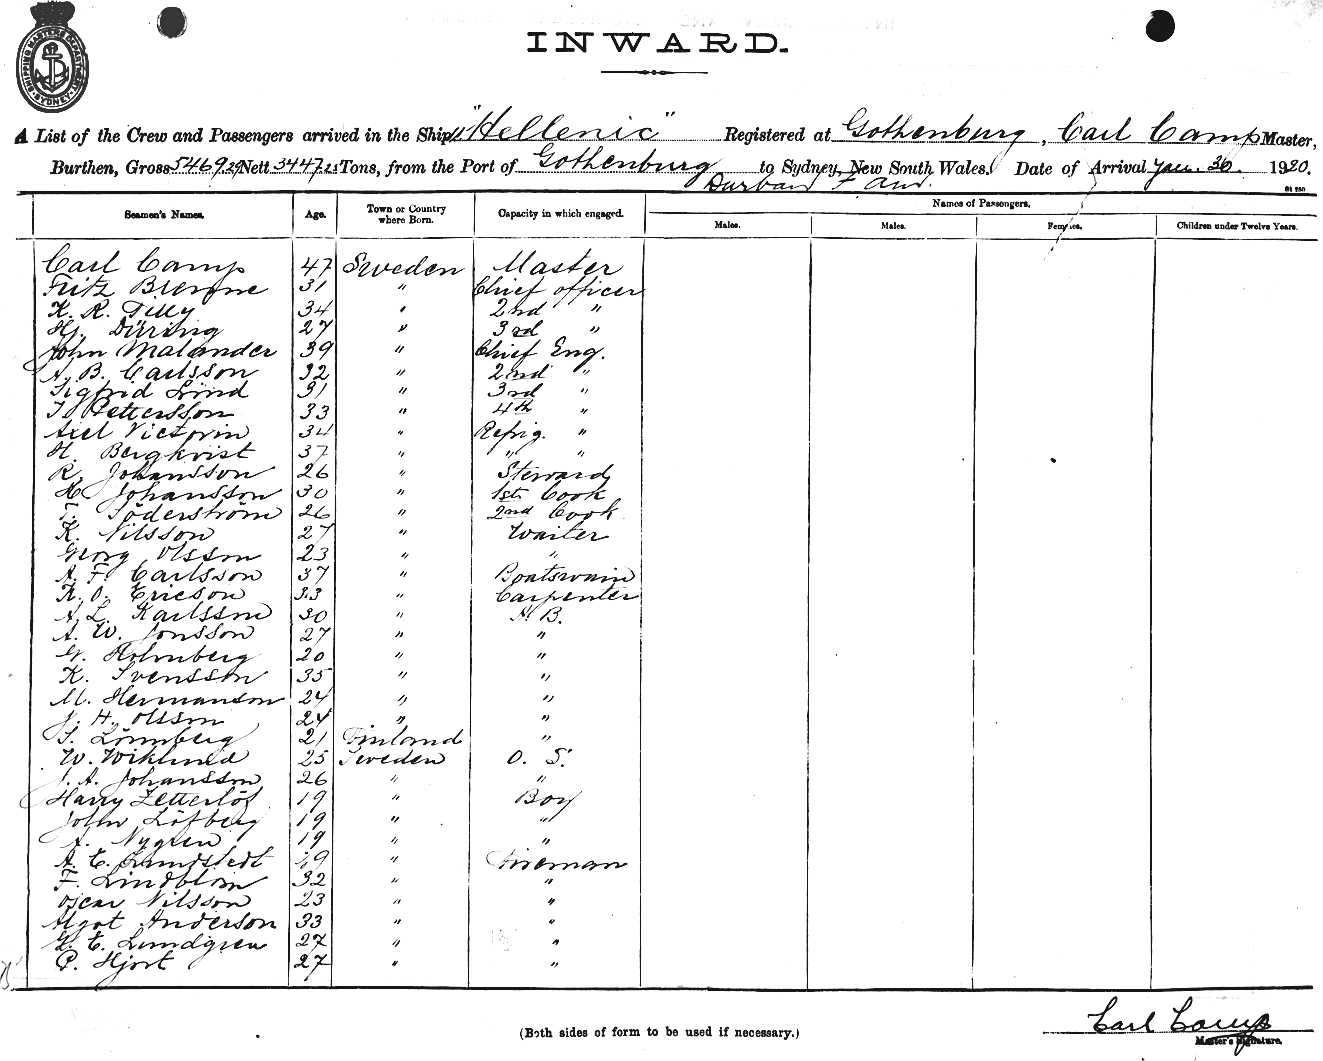 SHIPPING MASTERS DEPARTMENT SYDNEY
INWARD.
A List of the Crew and Passengers arrived in the Ship "Hellenic" Registered at Gothenburg, Carl Camp Master,
Burthen, Gross 5469.29 Nett 3447.23 Tons, from the Port of Gothenburg to Sydney, New South Wales. Date of Arrival Jan. 30. 1920.
Durban F. and.
Seamen's Names. Age. Town or Country where Born. Capacity in which engaged. Names of Passengers.
Males. Males. Females. Children under Twelve Years.
Carl Camp 47 Sweden Master
Fritz 31 " Chief officer
K. R. Tilly 34 " 2nd "
Hj. Düring 27 " 3rd "
John Malander 39 " Chief Eng.
A. B. Carlsson 32 " 2nd "
Sigfrid Lind 31 " 3rd "
Pettersson 33 " 4th "
Axel Victorin 34 " Refrig. "
H. Bergkvist 37 " " "
R. Johansson 26 " Steward
H. Johansson 30 " 1st Cook
Söderström 26 " 2nd Cook
K. Nilsson 27 " Waiter
Georg Olsson 23 " "
A. F. Carlsson 37 " Boatswain
K. O. Ericson 33 " Carpenter
A. L. Karlsson 30 " A. B.
A. W. Jonsson 27 " "
Holmberg 20 " "
K. Svensson 35 " "
M. Hermanson 24 " "
J. H. Olsson 24 " "
S. Lönnberg 21 Finland "
W. Wiklund 25 Sweden O. S.
J. A. Johansson 26 " "
Harry Zetterlöf 19 " Boy
John Löfberg 19 " "
A. Nygren 19 " "
A. E. Lundstedt 19 " Fireman
F. Lindblom 32 " "
Oscar Nilsson 23 " "
Algot Anderson 33 " "
E. Lundgren 27 " "
P. Hjort 27 " "
Carl Camp
(Both sides of form to be used if necessary.)
Master's Signature.